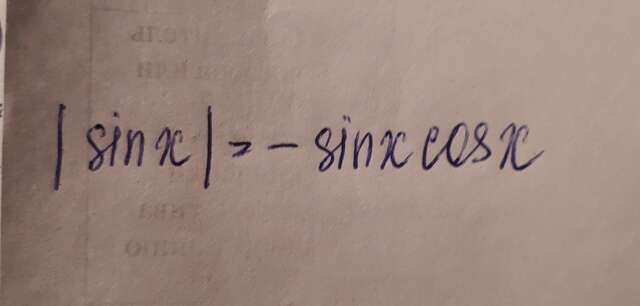 |sinx| = - sinx cosx